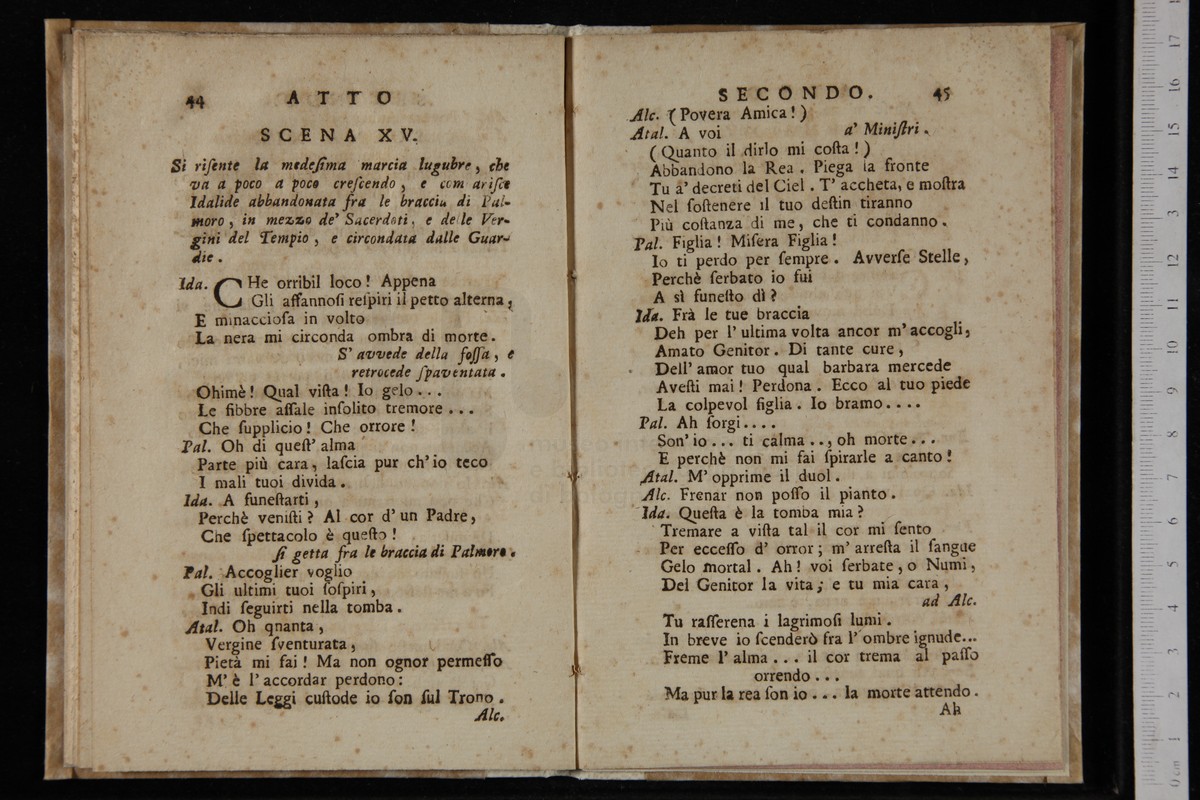 44 ATTO
SCENA XV.
Si riſente la medeſima marcia lugubre, che
va a poco a poco creſcendo, e com ariſce
Idalide abbandonata fra le braccia di Pal-
moro, in mezzo de' Sacerdoti, e delle Ver-
gini del Tempio, e circondata dalle Guar-
die.
Ida. CHe orribil loco! Appena
Gli affannoſi reſpiri il petto alterna,
E minaccioſa in volto
La nera mi circonda ombra di morte.
S' avvede della foſſa, e
retrocede ſpaventata.
Ohimè! Qual viſta! Io gelo...
Le fibbre aſſale inſolito tremore...
Che ſupplicio! Che orrore!
Pal. Oh di queſt' alma
Parte più cara, laſcia pur ch' io teco
I mali tuoi divida.
Ida. A funeſtarti,
Perchè veniſti? Al cor d' un Padre,
Che ſpettacolo è queſto!
ſi getta fra le braccia di Palmoro.
Pal. Accoglier voglio
Gli ultimi tuoi ſoſpiri,
Indi ſeguirti nella tomba.
Atal. Oh qnanta,
Vergine ſventurata,
Pietà mi fai! Ma non ognor permeſſo
M' è l' accordar perdono:
Delle Leggi cuſtode io ſon ſul Trono.
Alc.
SECONDO. 45
Alc. (Povera Amica!)
Atal. A voi a' Miniſtri.
(Quanto il dirlo mi coſta!)
Abbandono la Rea. Piega la fronte
Tu a' decreti del Ciel. T' accheta, e moſtra
Nel ſoſtenere il tuo deſtin tiranno
Più coſtanza di me, che ti condanno.
Pal. Figlia! Miſera Figlia!
Io ti perdo per ſempre. Avverſe Stelle,
Perchè ſerbato io fui
A sì funeſto dì?
Ida. Frà le tue braccia
Deh per l' ultima volta ancor m' accogli,
Amato Genitor. Di tante cure,
Dell' amor tuo qual barbara mercede
Aveſti mai! Perdona. Ecco al tuo piede
La colpevol figlia. Io bramo....
Pal. Ah ſorgi....
Son' io... ti calma .., oh morte...
E perchè non mi fai ſpirarle a canto!
Atal. M' opprime il duol.
Alc. Frenar non poſſo il pianto.
Ida. Queſta è la tomba mia?
Tremare a viſta tal il cor mi ſento
Per ecceſſo d' orror; m' arreſta il ſangue
Gelo mortal. Ah! voi ſerbate, o Numi,
Del Genitor la vita; e tu mia cara,
ad Alc.
Tu raſſerena i lagrimoſi lumi.
In breve io ſcenderò fra l' ombre ignude...
Freme l' alma... il cor trema al paſſo
orrendo...
Ma pur la rea ſon io... la morte attendo.
Ah